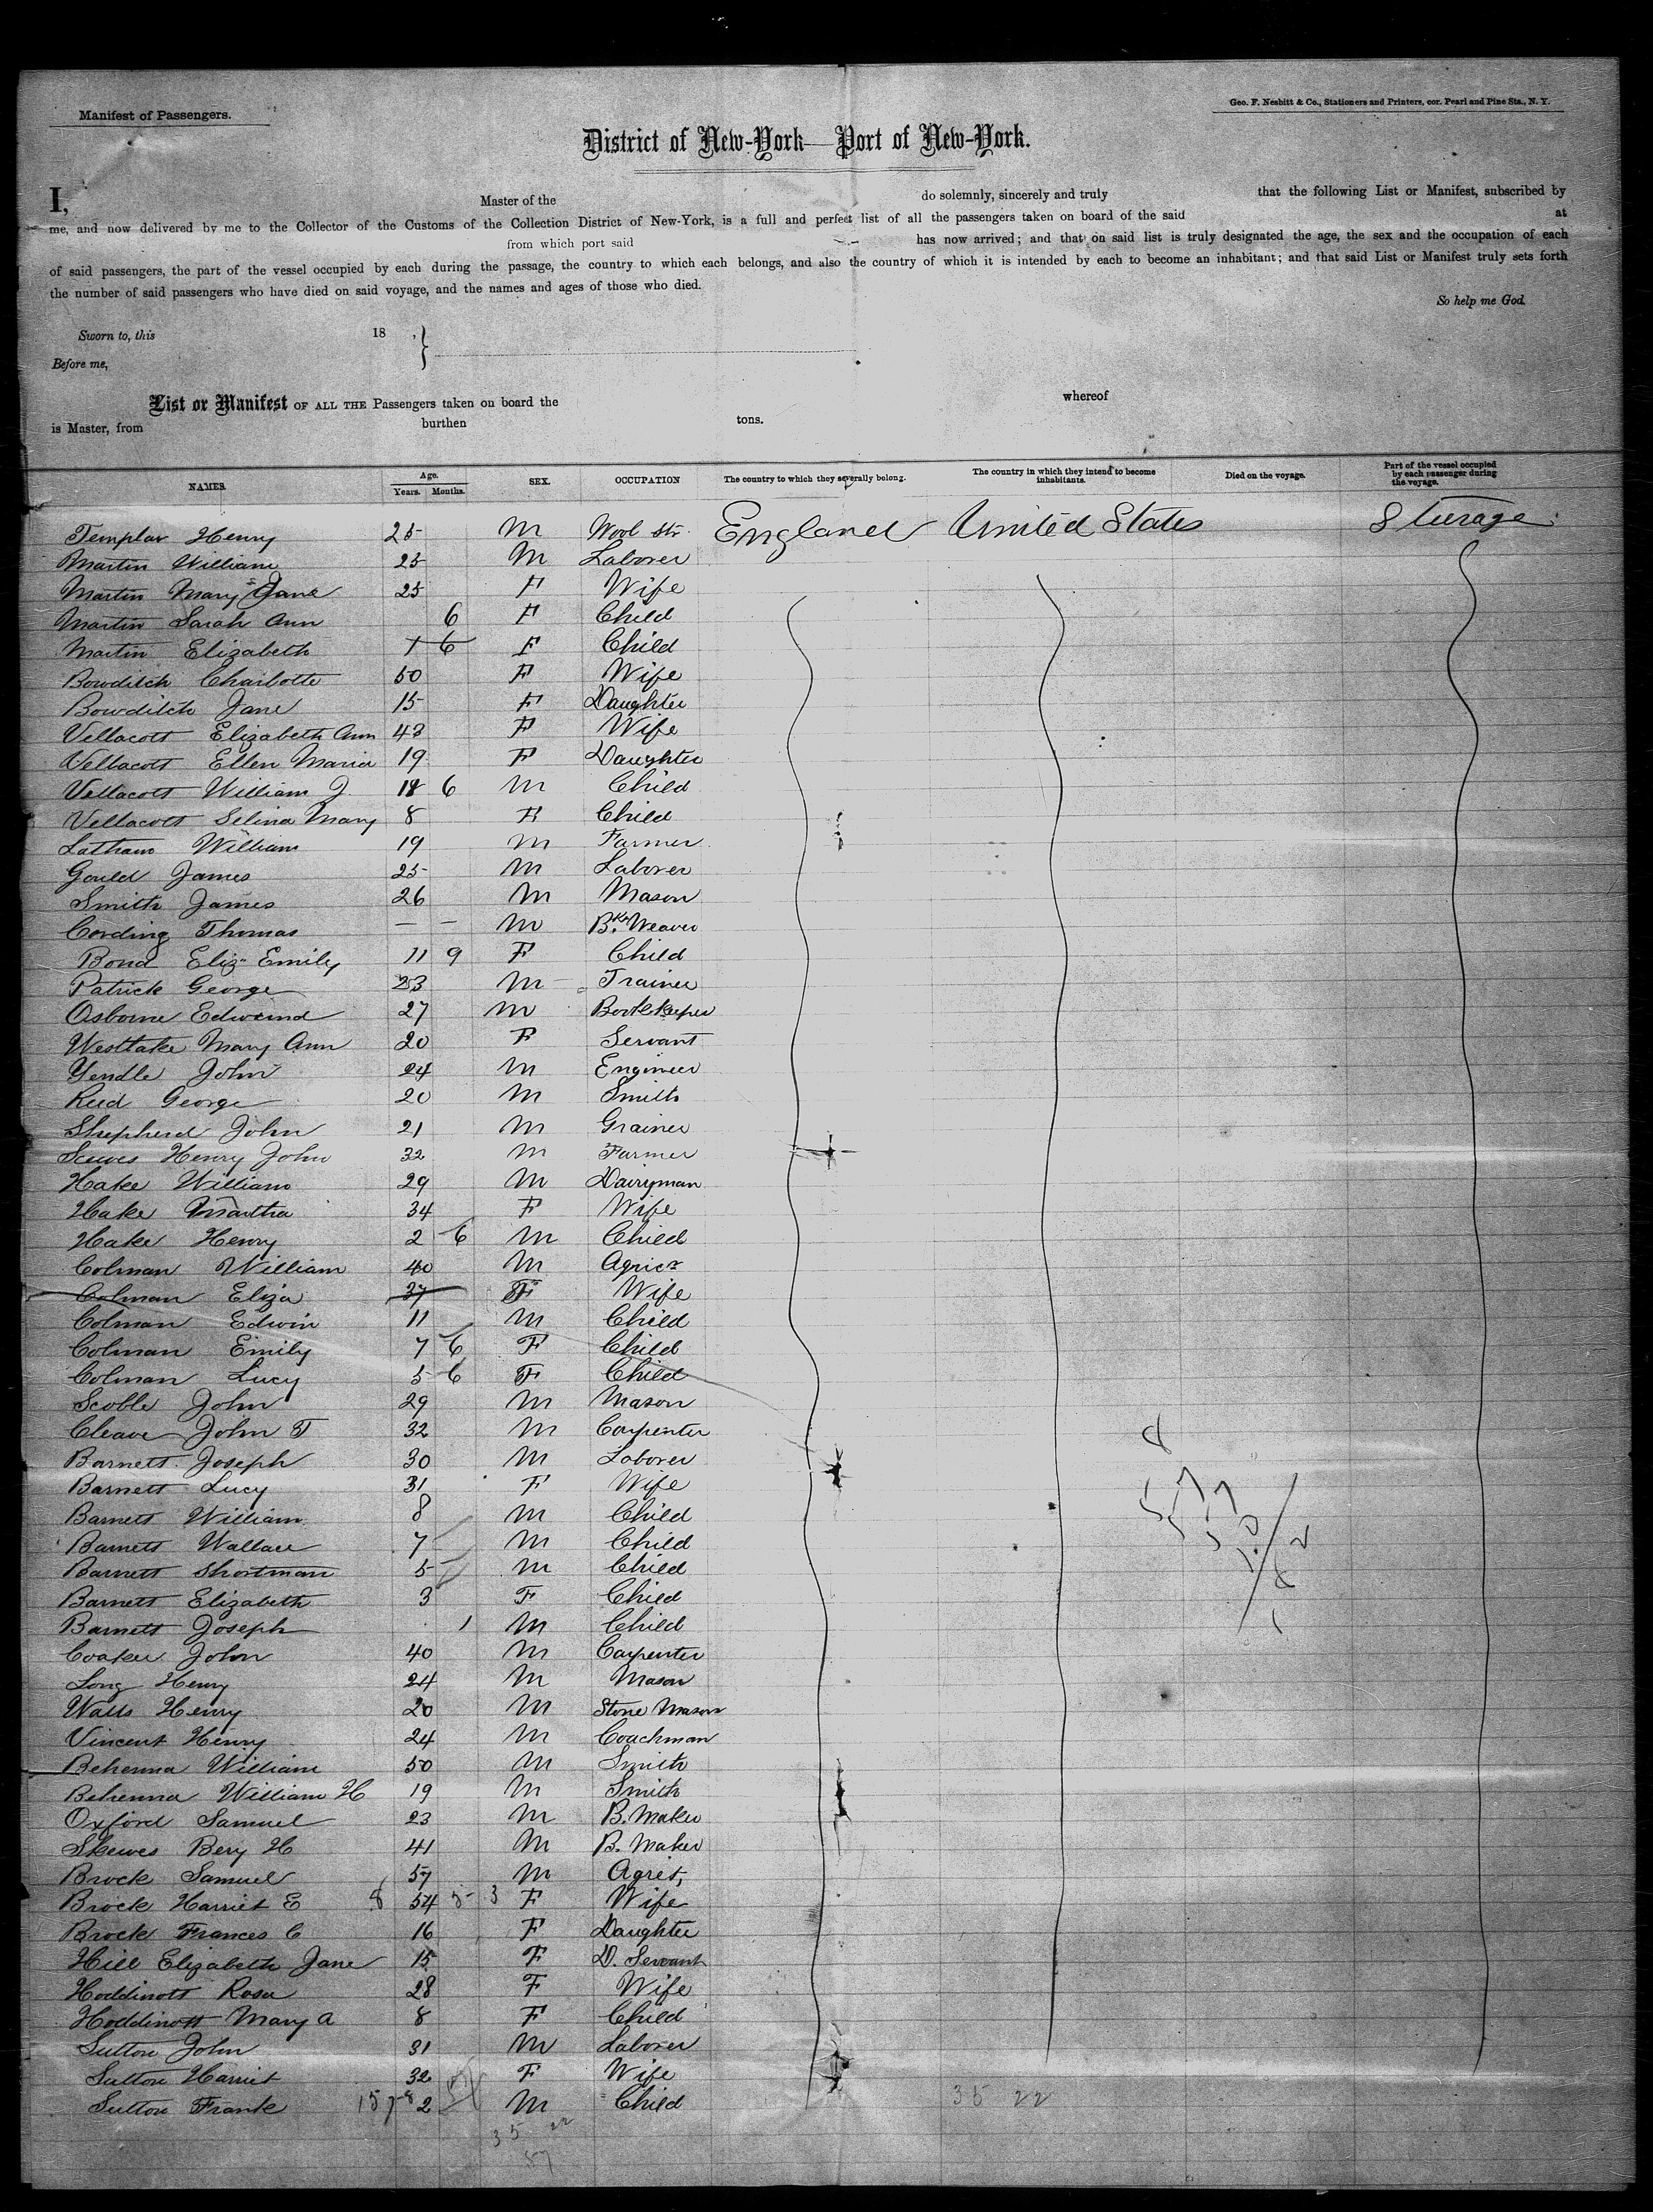 Manifest of Passengers.
Geo. F. Nesbitt & Co., Stationers and Printers, cor. Pearl and Pine Sts., N. Y.
District of New-York—Port of New-York.
I, Master of the do solemnly, sincerely and truly that the following List or Manifest, subscribed by
me, and now delivered by me to the Collector of the Customs of the Collection District of New-York, is a full and perfect list of all the passengers taken on board of the said at
from which port said has now arrived; and that on said list is truly designated the age, the sex and the occupation of each
of said passengers, the part of the vessel occupied by each during the passage, the country to which each belongs, and also the country of which it is intended by each to become an inhabitant; and that said List or Manifest truly sets forth
the number of said passengers who have died on said voyage, and the names and ages of those who died.
So help me God.
Sworn to, this 18 ,
Before me,
List or Manifest OF ALL THE Passengers taken on board the whereof
is Master, from burthen tons.
NAMES. Age. Years. Months. SEX. OCCUPATION The country to which they severally belong. The country in which they intend to become inhabitants. Died on the voyage. Part of the vessel occupied by each passenger during the voyage.
Templar Henry 25 M Wool Str. England United States Sturage
Martin William 25 M Laborer
Martin Mary Jane 25 F Wife
Martin Sarah Ann 6 F Child
Martin Elizabeth 1 6 F Child
Bowditch Charlotte 50 F Wife
Bowditch Jane 15 F Daughter
Vellacott Elizabeth Ann 43 F Wife
Vellacott Ellen Maria 19 F Daughter
Vellacott William J. 18 6 M Child
Vellacott Selina Mary 8 F Child
Latham William 19 M Farmer
Gould James 25 M Laborer
Smith James 26 M Mason
Cording Thomas — — M Bkt Weaver
Bond Eliz. Emily 11 9 F Child
Patrick George 23 M Trainer
Osborne Edward 27 M Bookkeeper
Westlake Mary Ann 20 F Servant
Yendle John 24 M Engineer
Reed George 20 M Smith
Shepherd John 21 M Grainer
Henry John 32 M Farmer
Hake William 29 M Dairyman
Hake Martha 34 F Wife
Hake Henry 2 6 M Child
Colman William 40 M Agricr
Colman Eliza 37 F Wife
Colman Edwin 11 M Child
Colman Emily 7 6 F Child
Colman Lucy 5 6 F Child
Scoble John 29 M Mason
Cleave John T 32 M Carpenter
Barnett Joseph 30 M Laborer
Barnett Lucy 31 F Wife
Barnett William 8 M Child
Barnett Wallace 7 M Child
Barnett Shortman 5 M Child
Barnett Elizabeth 3 F Child
Barnett Joseph 1 M Child
Coaker John 40 M Carpenter
Long Henry 24 M Mason
Watts Henry 20 M Stone Mason
Vincent Henry 24 M Coachman
Behenna William 50 M Smith
Behenna William H 19 M Smith
Oxford Samuel 23 M B. Maker
Skewes Benj H 41 M B. Maker
Brock Samuel 57 M Agrict,
Brock Harriet E 54 F Wife
Brock Frances C 16 F Daughter
Hill Elizabeth Jane 15 F D. Servant
Hoddinott Rosa 28 F Wife
Hoddinott Mary A 8 F Child
Sutton John 31 M Laborer
Sutton Harriet 32 F Wife
Sutton Frank 2 M Child
35 22
35 22
57